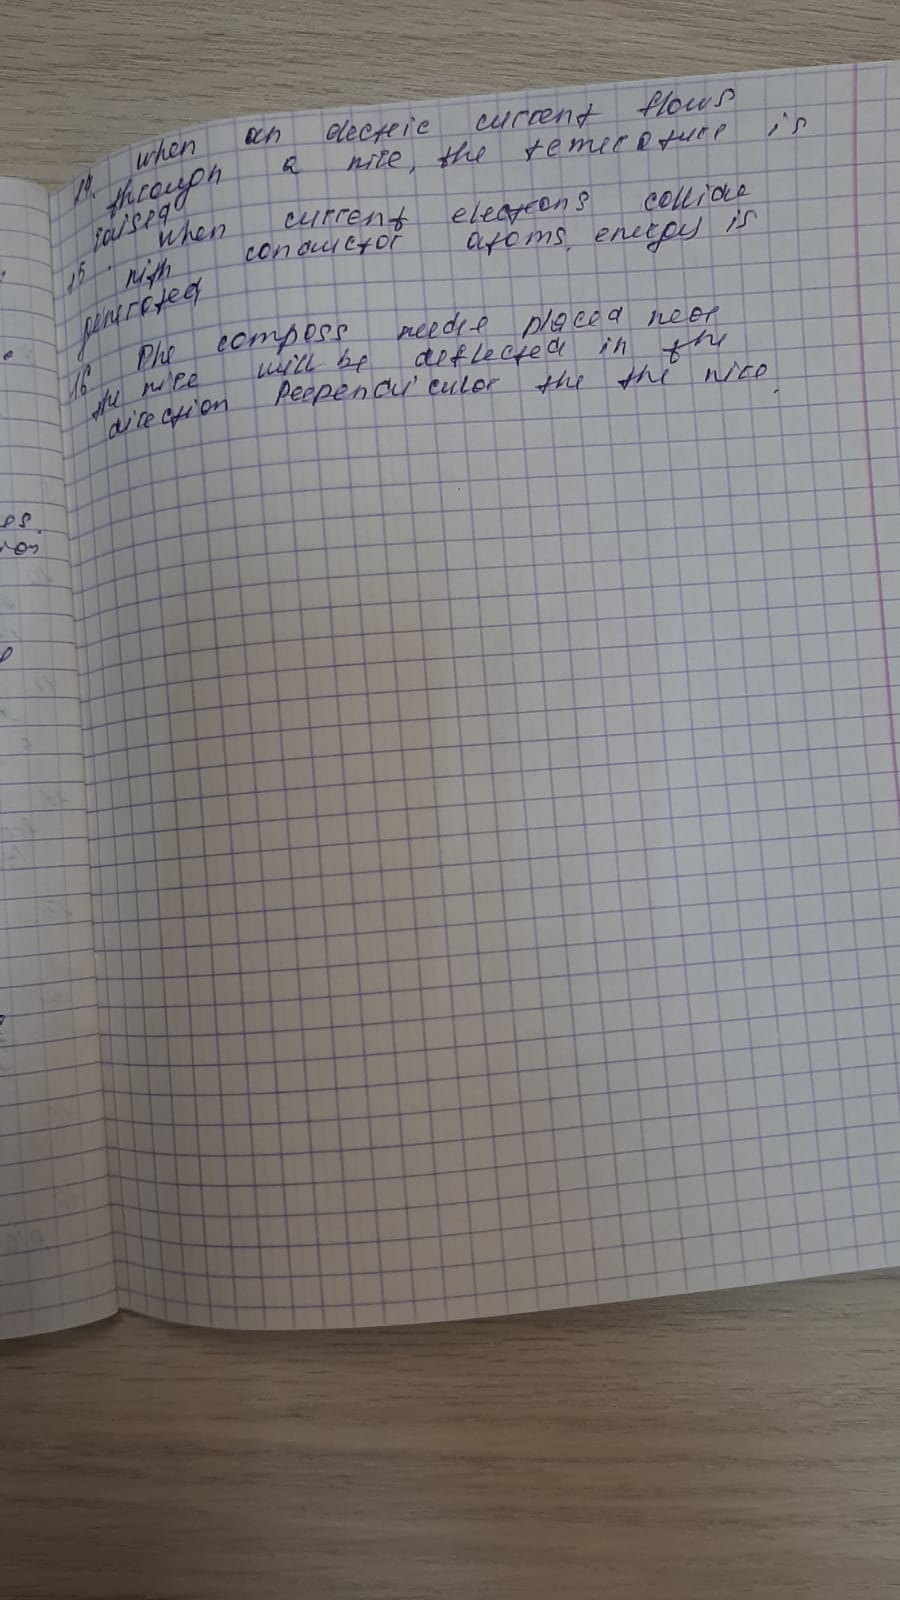 14. when an electric current flows
through a wire, the temerature is
raised
15. When current electrons collide
with conductor atoms, energy is
generated
16. The compass needle placed near
the wire will be deflected in the
direction perpendicular the the wire.
es.